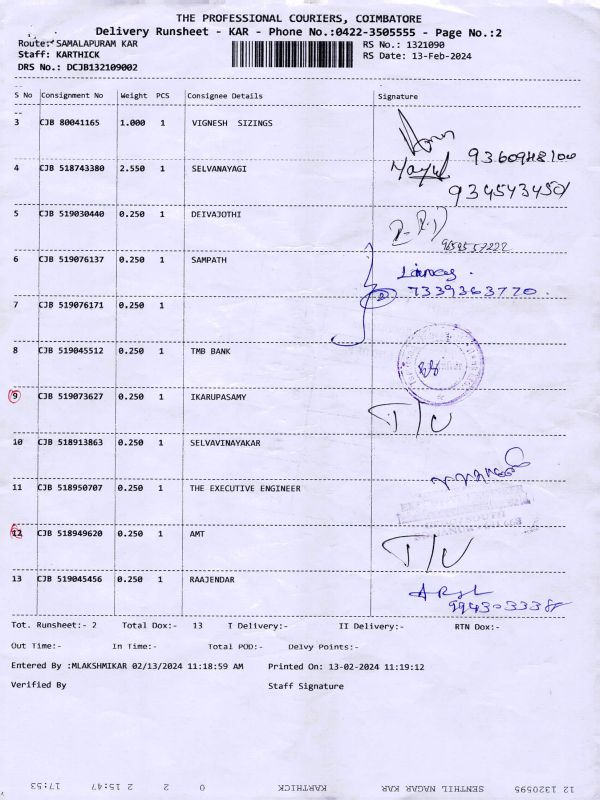 THE PROFESSIONAL COURIERS, COIMBATORE
Delivery Runsheet - KAR - Phone No.:0422-3505555 - Page No.:2
Route: SAMALAPURAM KAR RS No.: 1321090
Staff: KARTHICK RS Date: 13-Feb-2024
DRS No.: DCJB132109002
S No Consignment No Weight PCS Consignee Details Signature
3 CJB 80041165 1.000 1 VIGNESH SIZINGS
4 CJB 518743380 2.550 1 SELVANAYAGI
5 CJB 519030440 0.250 1 DEIVAJOTHI
6 CJB 519076137 0.250 1 SAMPATH
7339363770
7 CJB 519076171 0.250 1
8 CJB 519045512 0.250 1 TMB BANK
9 CJB 519073627 0.250 1 IKARUPASAMY
10 CJB 518913863 0.250 1 SELVAVINAYAKAR
11 CJB 518950707 0.250 1 THE EXECUTIVE ENGINEER
12 CJB 518949620 0.250 1 AMT
13 CJB 519045456 0.250 1 RAAJENDAR
Tot. Runsheet:- 2 Total Dox:- 13 I Delivery:- II Delivery:- RTN Dox:-
Out Time:- In Time:- Total POD:- Delvy Points:-
Entered By :MLAKSHMIKAR 02/13/2024 11:18:59 AM Printed On: 13-02-2024 11:19:12
Verified By Staff Signature
12 1320595 SENTHIL NAGAR KAR KARTHICK 0 2 2 15:47 17:53